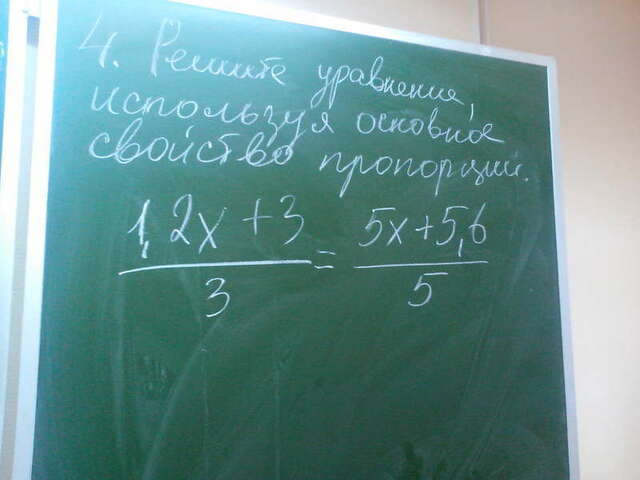 4. Решите уравнение,
используя основное
свойство пропорции.
1,2x + 3 / 3 = 5x + 5,6 / 5